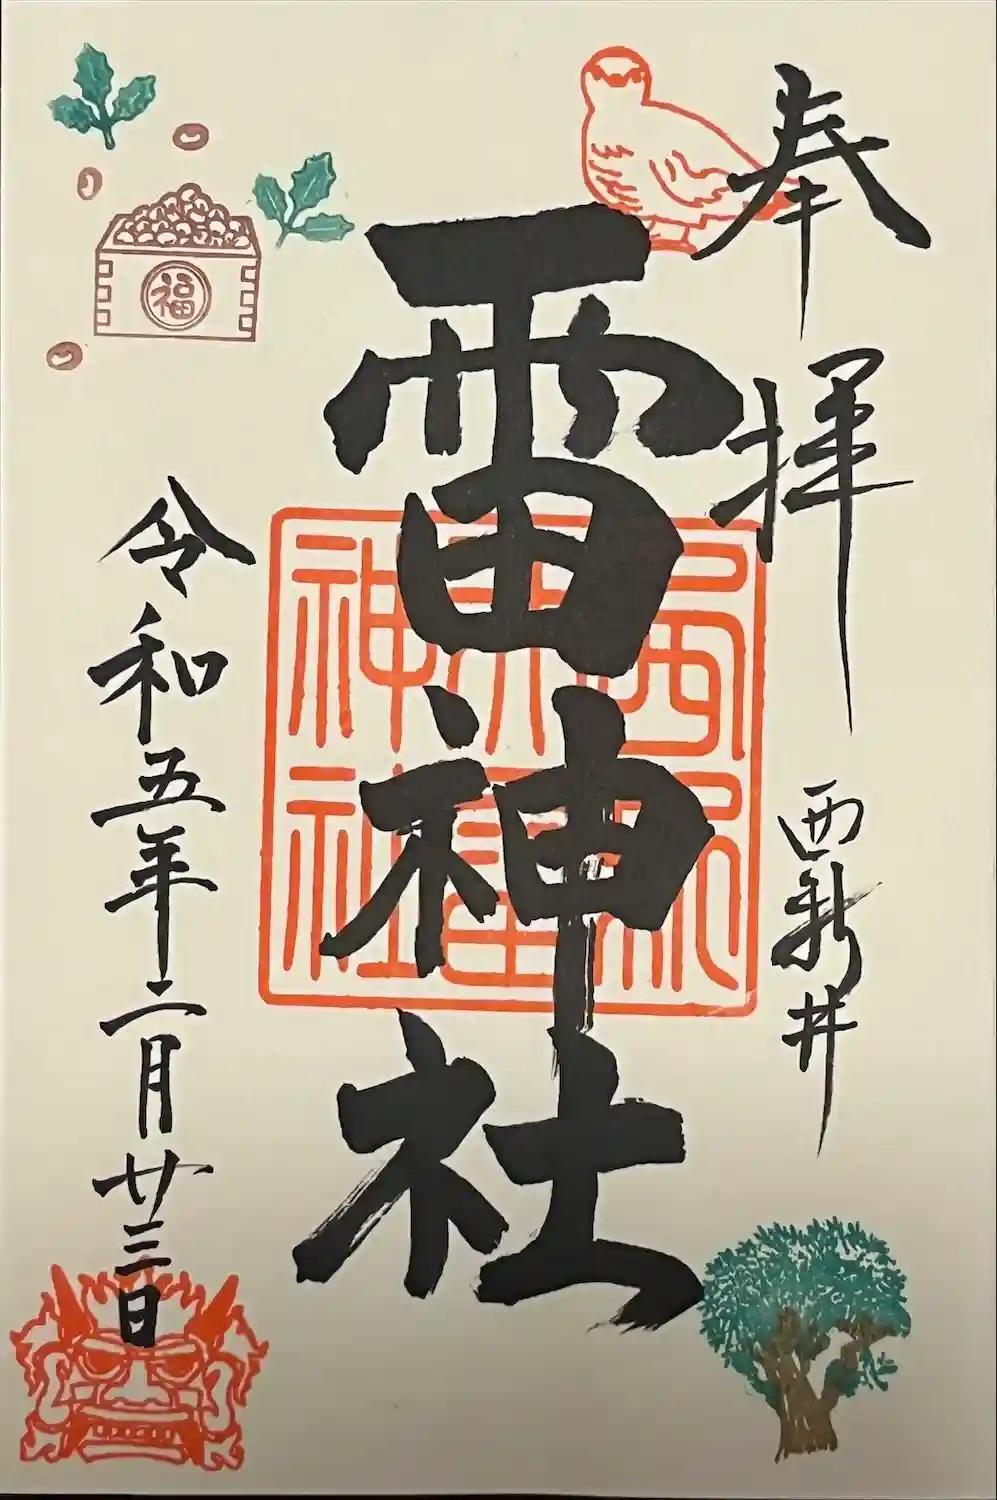 奉拝
西新井
雷神社
令和五年二月廿三日
福
神社